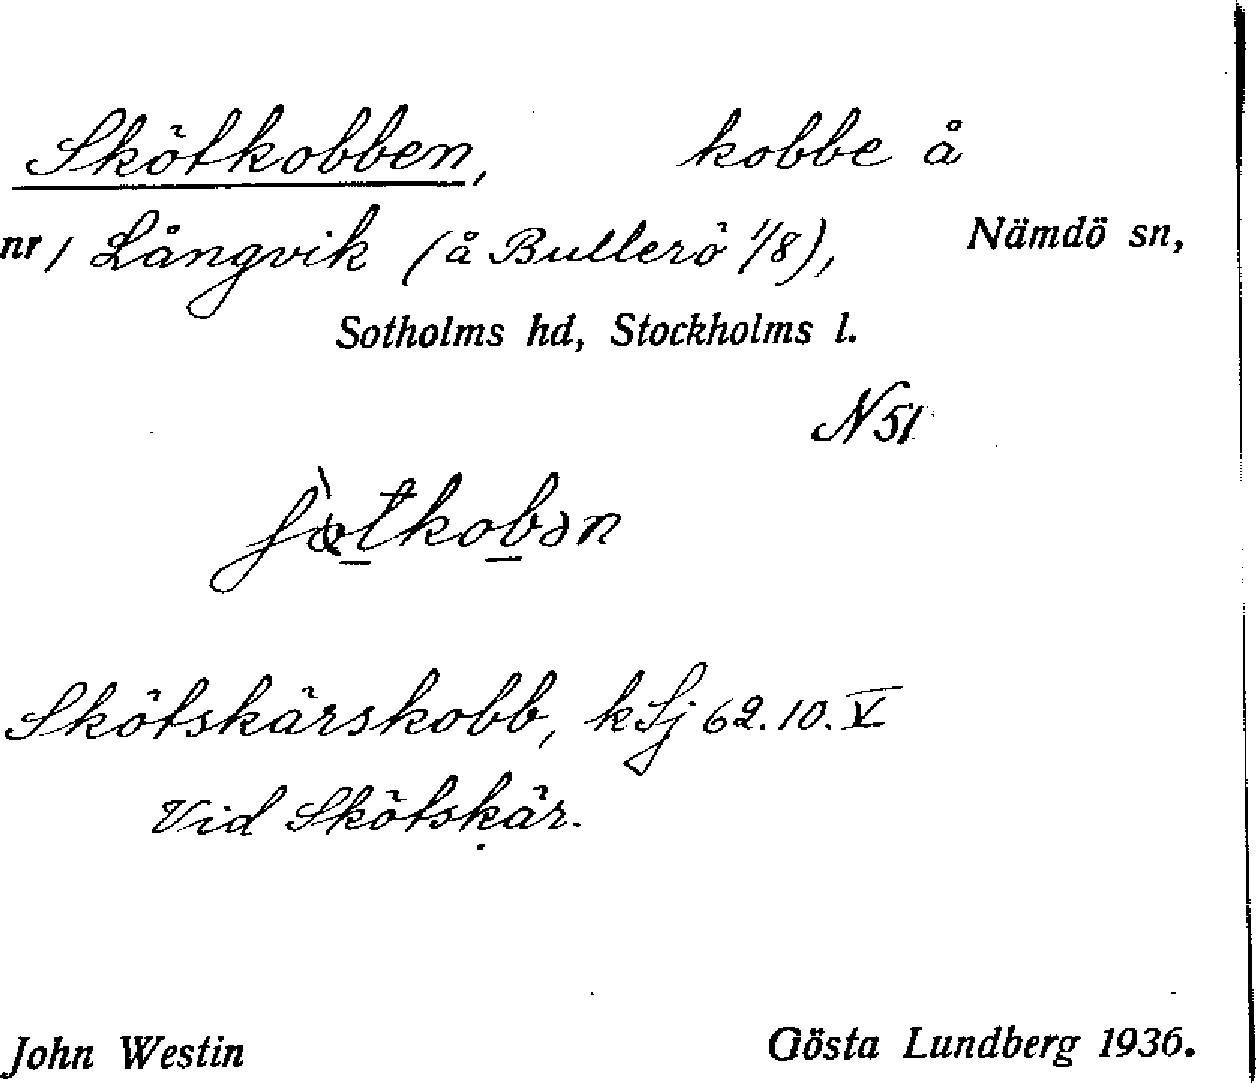 Skötkobben, kobbe å
nr 1 Långvik (å Bullerö 1/8), Nämdö sn,
Sotholms hd, Stockholms l.
N 51
Skötskärskobb, k Sj 62.10.V
Vid Skötskär.
John Westin Gösta Lundberg 1936.